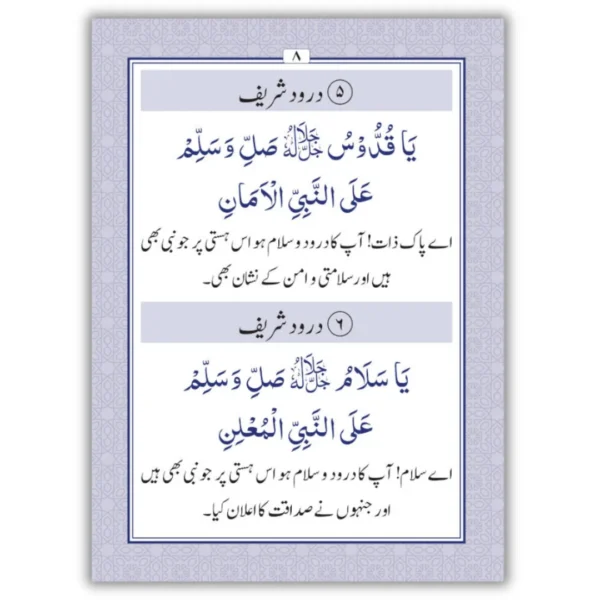 ۸
۵ درود شریف
يَا قُدُّوْسُ جَلَّ جَلَالُهٗ صَلِّ وَسَلِّمْ
عَلَى النَّبِيِّ الْاَمَانِ
اے پاک ذات! آپ کا درود و سلام ہو اس ہستی پر جو نبی بھی
ہیں اور سلامتی و امن کے نشان بھی۔
۶ درود شریف
يَا سَلَامُ جَلَّ جَلَالُهٗ صَلِّ وَسَلِّمْ
عَلَى النَّبِيِّ الْمُعْلِنِ
اے سلام! آپ کا درود و سلام ہو اس ہستی پر جو نبی بھی ہیں
اور جنہوں نے صداقت کا اعلان کیا۔